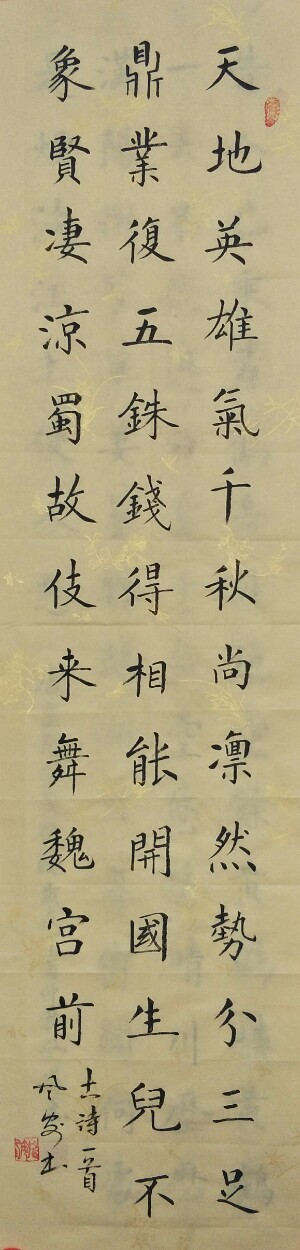 天地英雄氣千秋尚凛然勢分三足
鼎業復五銖錢得相能開國生兒不
象賢凄涼蜀故伎来舞魏宫前
古詩一首